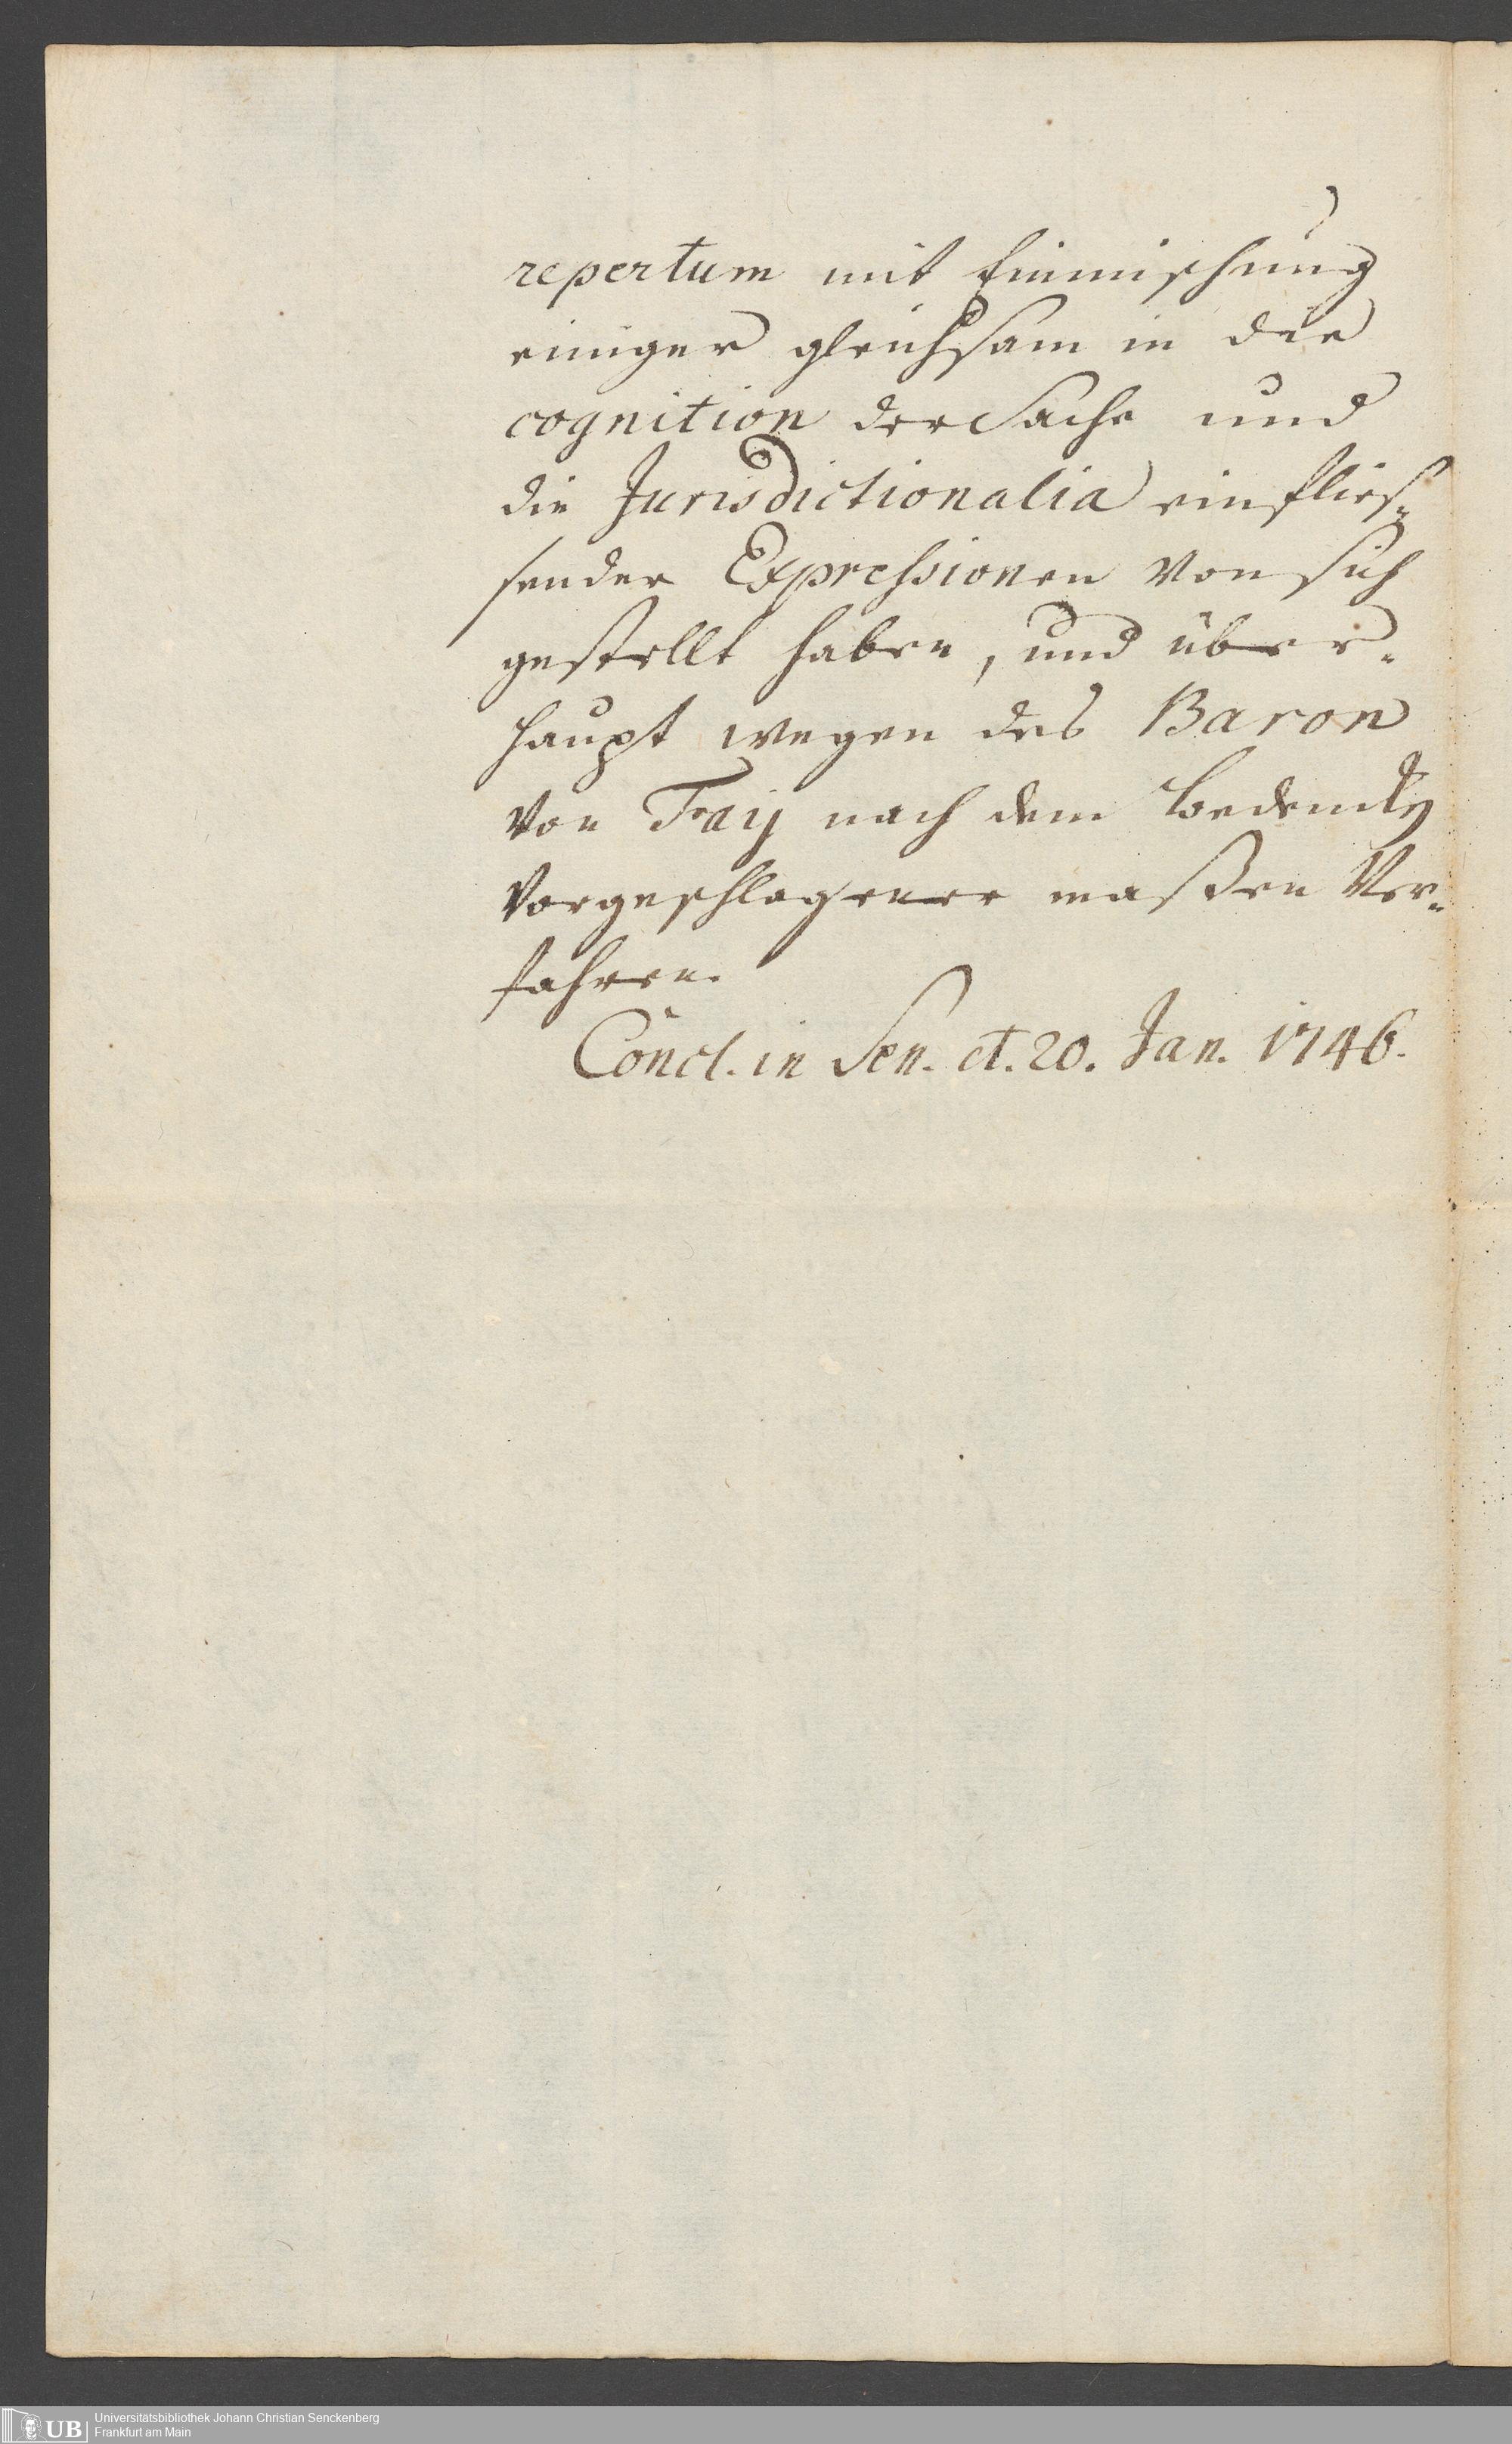 repertum mit Einmischung
einiger gleichsam in die
cognition der Sache und
die Jurisdictionalia einflies-
sender Expressionen von sich
gestellt haben, und über-
haupt wegen des Baron
von Fay nach dem Bedencken
vorgeschlagener maßen ver-
fahren.
Concl. in Sen. ct. 20. Jan. 1746.
UB
Universitätsbibliothek Johann Christian Senckenberg
Frankfurt am Main